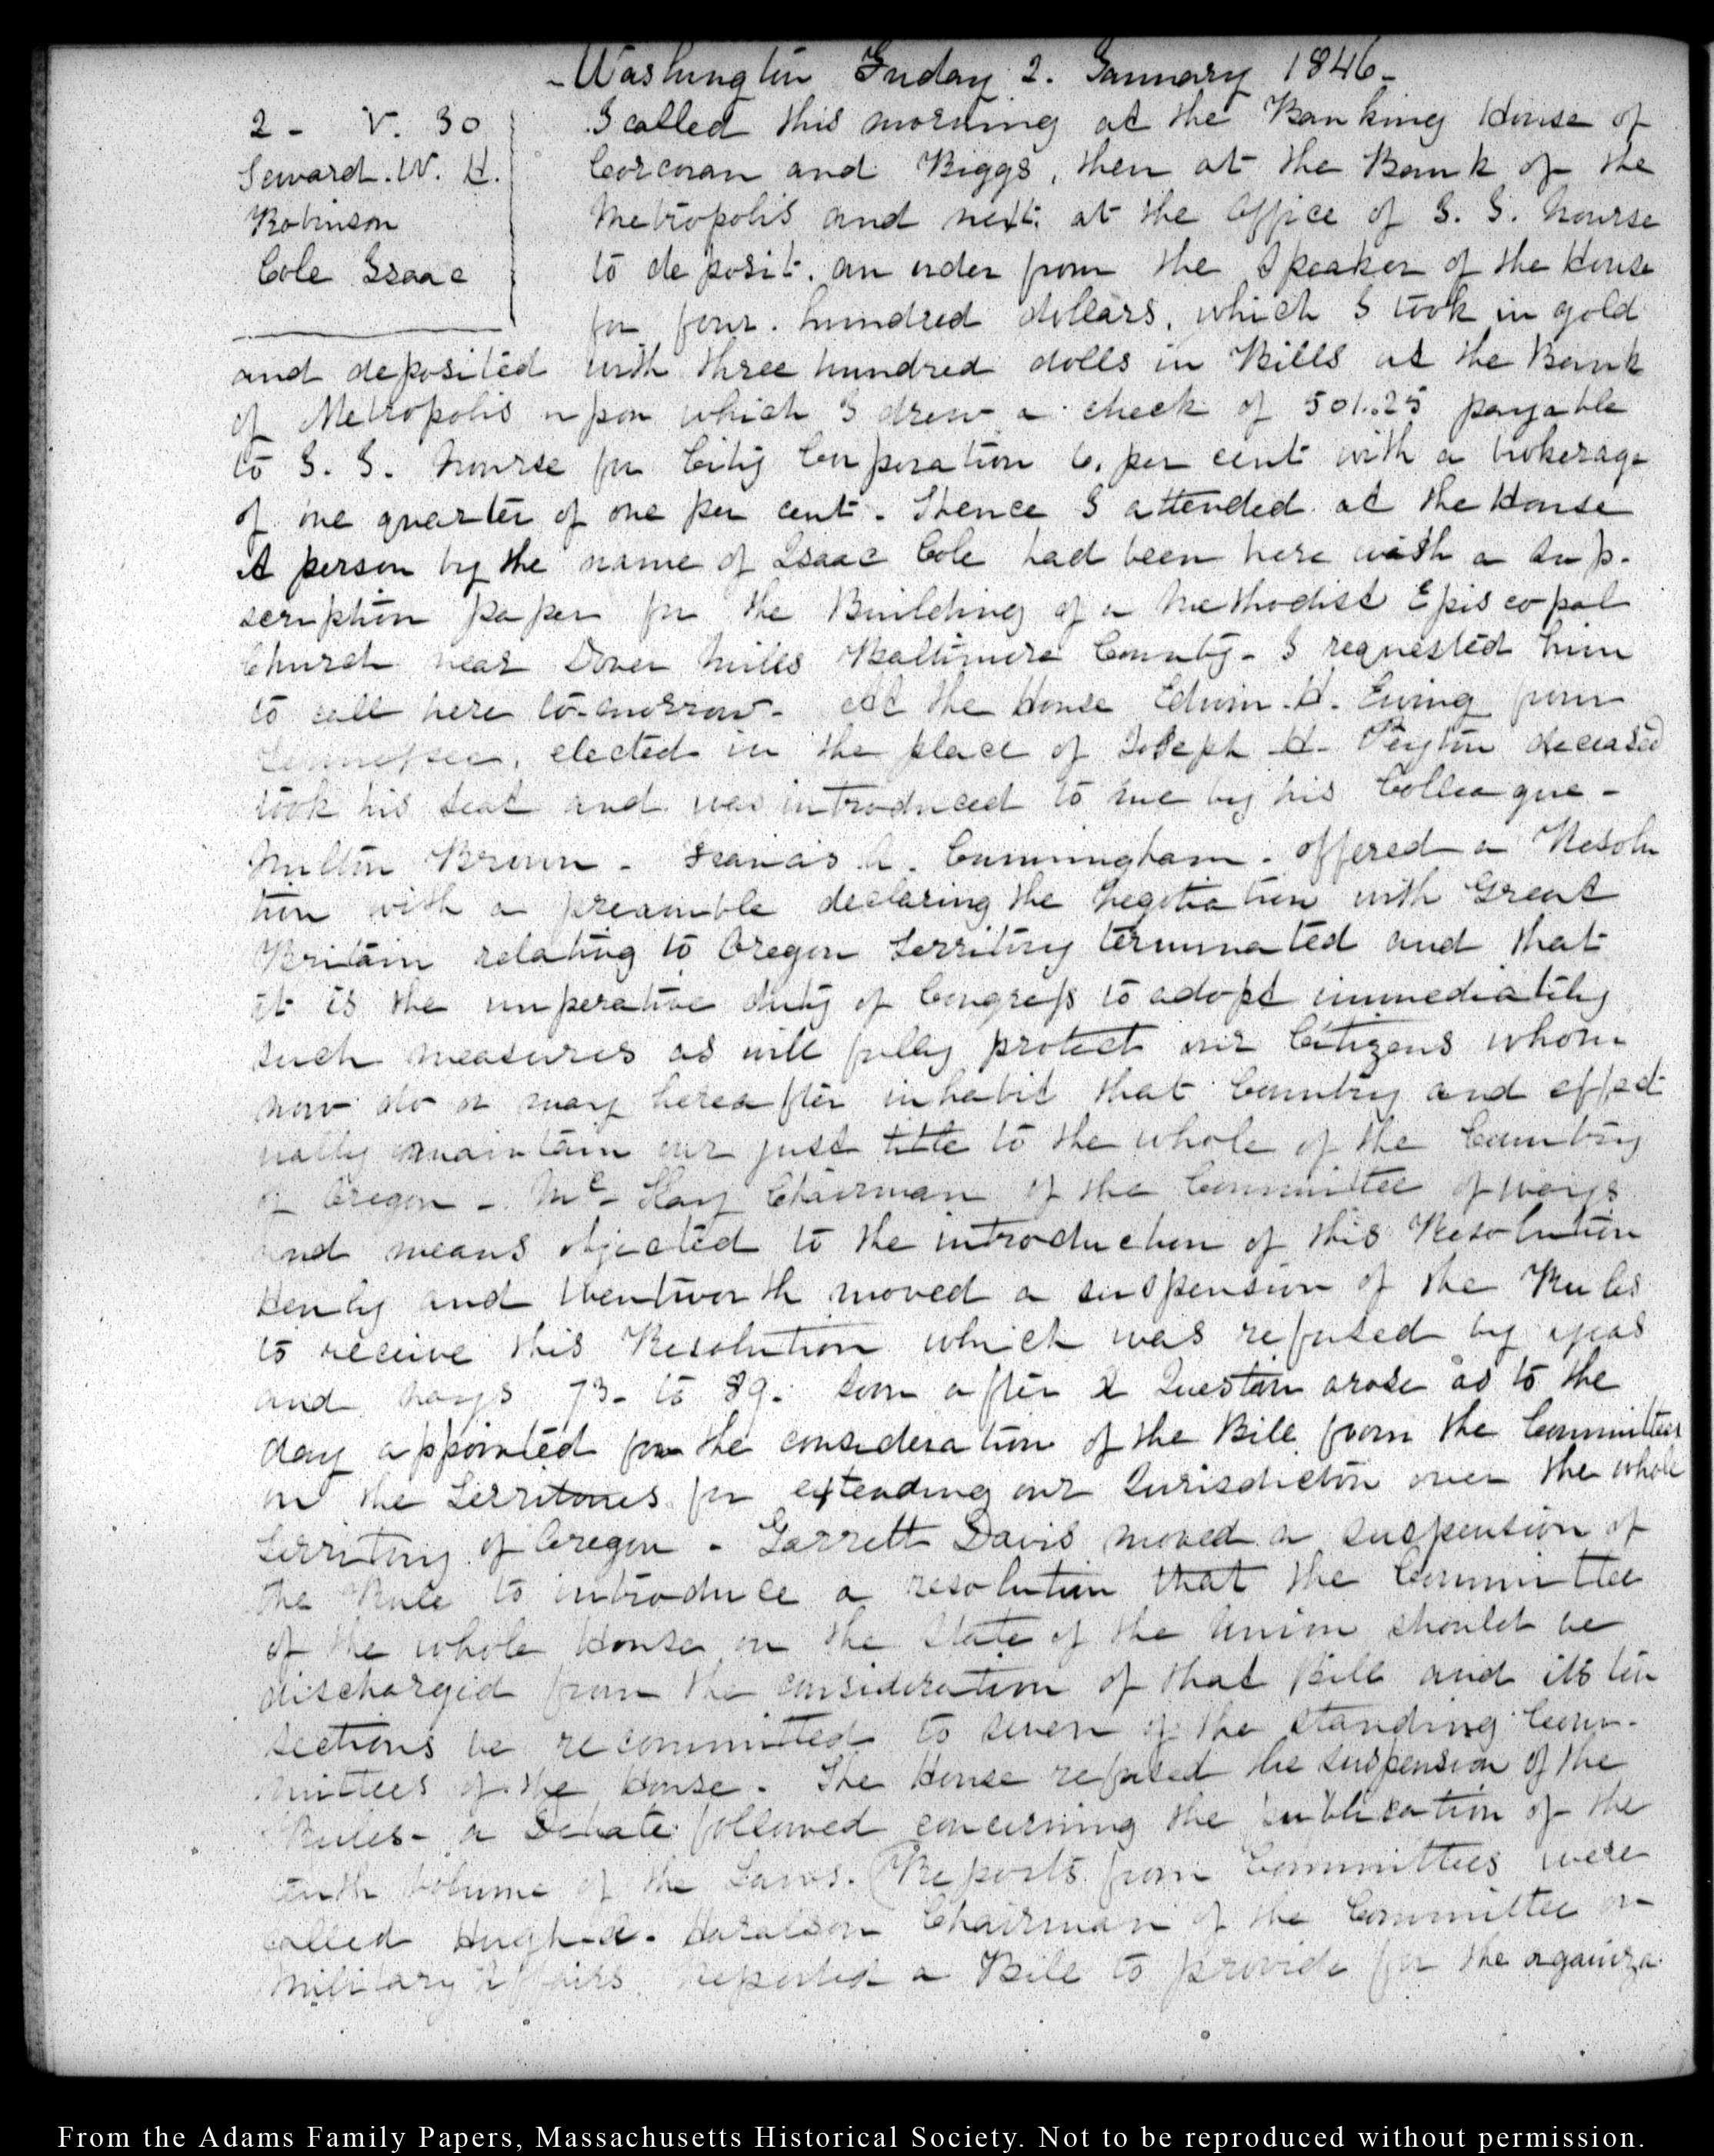 Washington Friday 2. January 1846-
2 - V. 30
Seward. W. H.
Robinson
Cole Isaac
I called this morning at the Banking House of
Corcoran and Riggs, then at the Bank of the
Metropolis and next at the Office of Nourse
to deposit an order from the Speaker of the House
for four hundred dollars, which I took in gold
and deposited with three hundred dolls in Bills at the Bank
of Metropolis upon which I drew a check of 501.25 payable
to Nourse for City Corporation 6. per cent with a brokerage
of one quarter of one per cent. Thence I attended at the House
A person by the name of Isaac Cole had been here with a sup-
scription paper for the Building of a Methodist Episcopal
Church near Dover Mills Baltimore County- I requested him
to call here to-morrow- At the House Edwin. H. Ewing from
Tennessee, elected in the place of Joseph H. Peyton deceased
took his seat and was introduced to me by his Colleague-
Milton Brown- Francis A. Cunningham offered a Resolu
tion with a preamble declaring the negotiation with Great
Britain relating to Oregon Territory terminated and that
it is the imperative duty of Congress to adopt immediately
such measures as will fully protect our Citizens whom
now do or may hereafter inhabit that Country and effect
ually maintain our just title to the whole of the Country
of Oregon - Mc Kay Chairman of the Committee of ways
and means objected to the introduction of this Resolution
Henly and Wentworth moved a suspension of the Rules
to receive this Resolution which was refused by yeas
and nays 73- to 89. Soon after a Question arose as to the
day appointed for the consideration of the Bill from the Committee
on the Territories for extending our Jurisdiction over the whole
Territory of Oregon - Garrett Davis moved a suspension of
the Rule to introduce a resolution that the Committee
of the whole House on the State of the Union should be
discharged from the consideration of that Bill and its ten
sections be recommitted to seven of the standing Com-
mittees of the House. The House refused the suspension of the
Rules- a Debate followed concerning the publication of the
tenth volume of the Laws. (Reports from Committees were
called Hugh A. Haralson Chairman of the Committee on
Military Affairs Reported a Bill to provide for the organiza
From the Adams Family Papers, Massachusetts Historical Society. Not to be reproduced without permission.